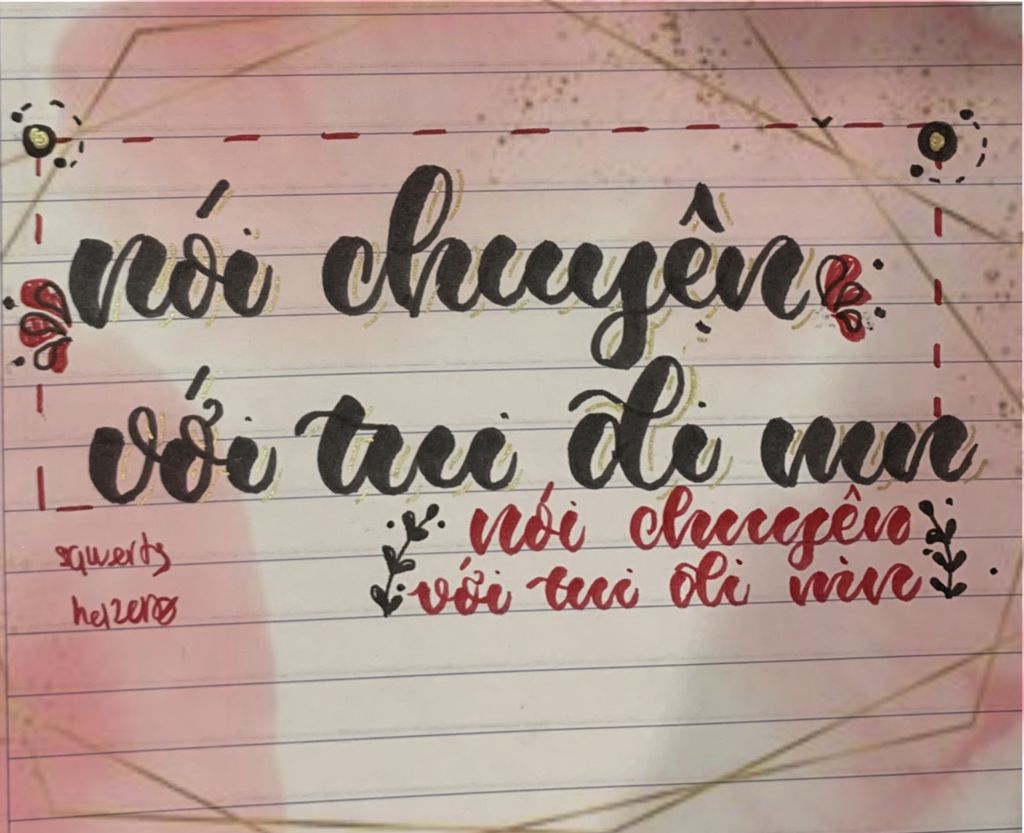 nói chuyện
với tui đi mn
nói chuyên
với tui đi
sqwerty
helzero